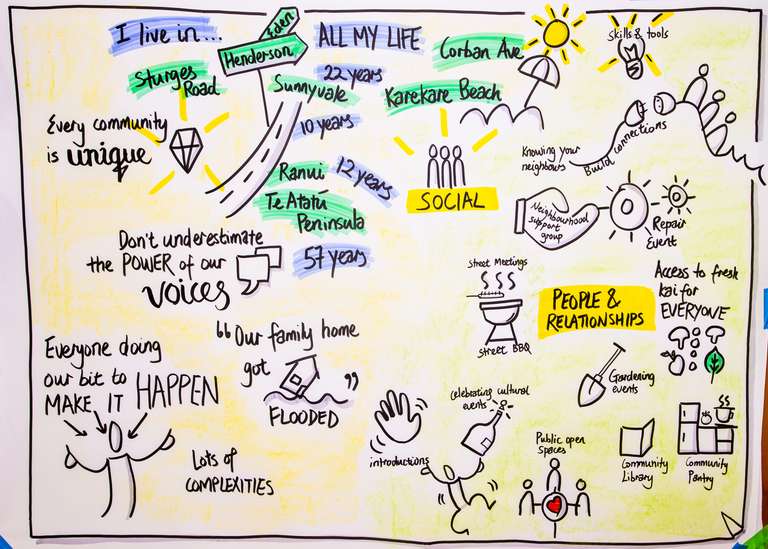 I live in...
Eden
Henderson
ALL MY LIFE
Sturges
Road
Sunnyvale
22 years
10 years
Ranui
12 years
Te Atatū
Peninsula
57 years
Every community
is unique
Don't underestimate
the POWER of our
voices
Everyone doing
our bit to
MAKE IT HAPPEN
"Our family home
got
"
FLOODED
Lots of
COMPLEXITIES
Corban Ave
Karekare Beach
Skills & tools
SOCIAL
Knowing your
neighbours
Build connections
Neighbourhood
support
group
Repair
Event
Street Meetings
Street BBQ
PEOPLE &
RELATIONSHIPS
Access to fresh
kai for
EVERYONE
Gardening
events
Celebrating cultural
events
introductions
Public open
Spaces
Community
Library
Community
Pantry